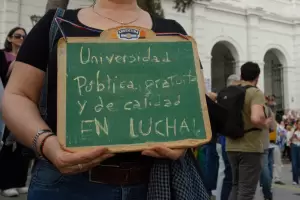 Universidad
Pública, gratuita
y de calidad
EN LUCHA!